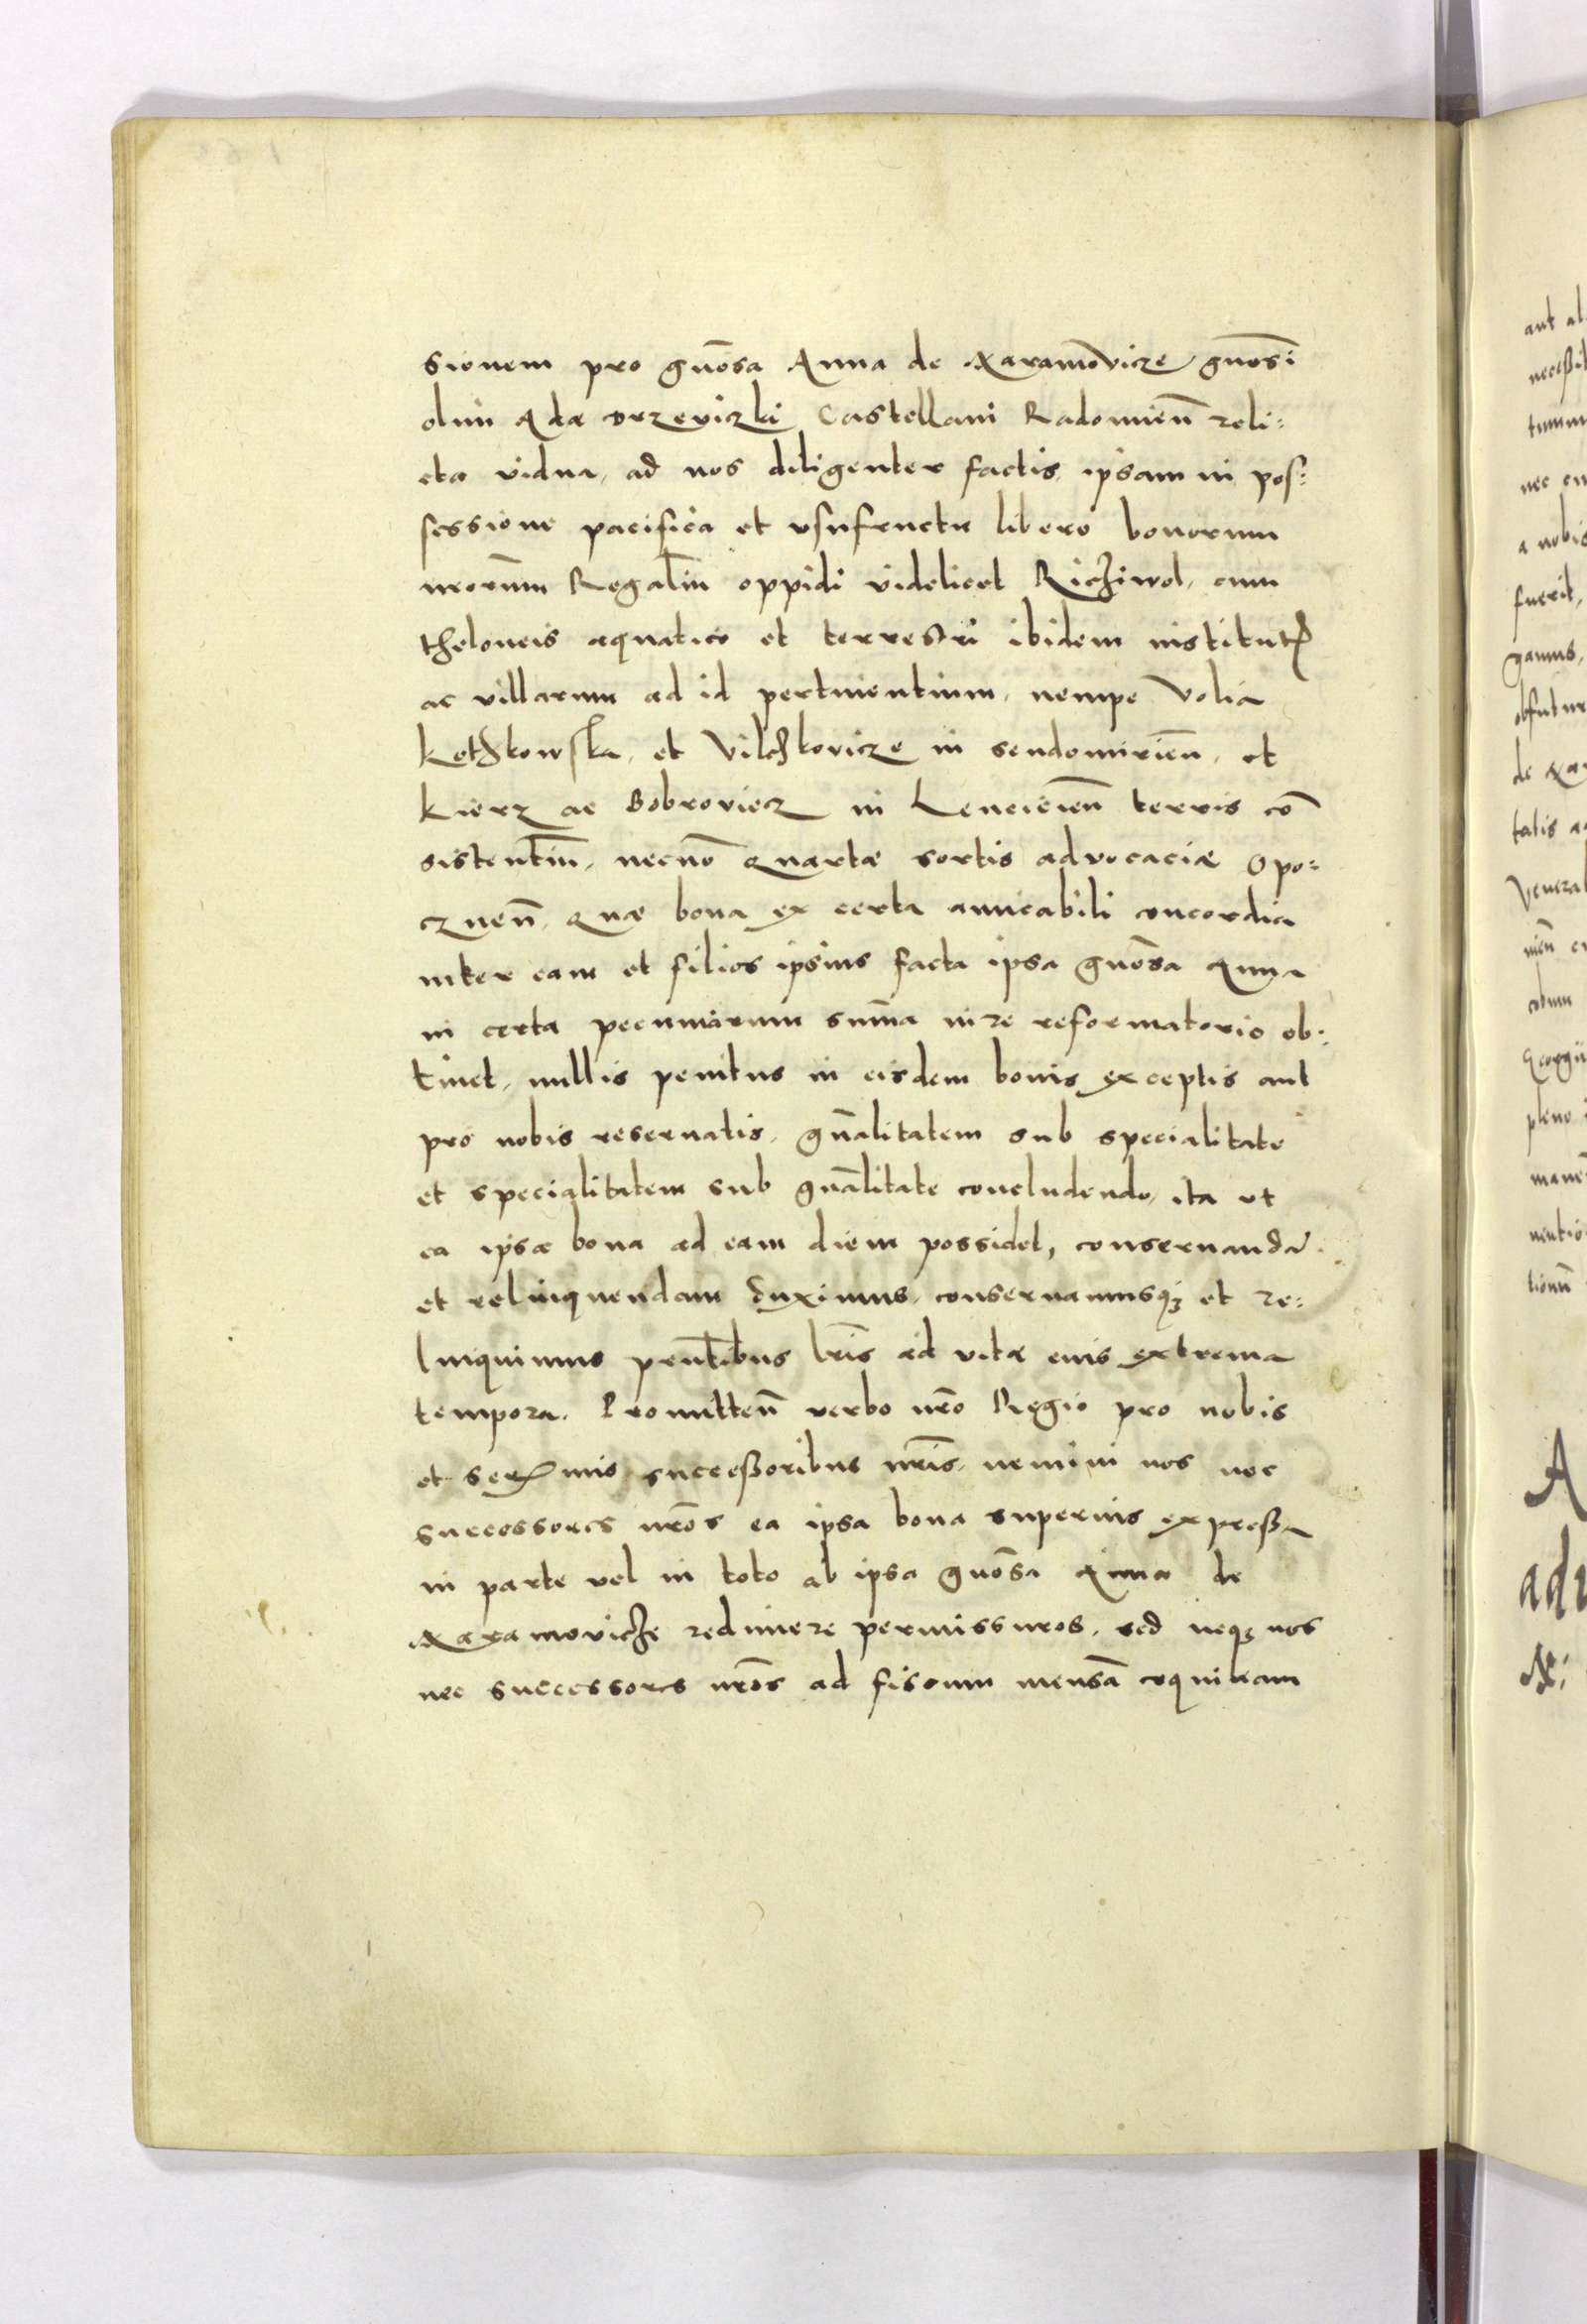 sionem pro gnōsa Anna de Xaramovicze gnōsi
olim Adæ Drzeviczki Castellani Radomieñ reli=
cta vidua, ad nos diligenter factis, ipsam in pos=
sessione pacifica et usufructu libero bonorum
nrorum Regaliū oppidi videlicet Richiwol, cum
theloneis aquatico et terrestri ibidem institutis
ac villarum ad id pertinentium, nempe Volia
Kothkowska, et Vilchkovicze in Sendomirieñ, et
Kierz ac Bobroviecz in Lencicieñ terris cō
sistentiū, necnō Quartæ sortis advocaciæ Opo=
czneñ, Quæ bona ex certa amicabili concordia
inter eam et filios ipsius facta ipsa gnōsa Anna
in certa pecuniarum summa iure reformatorio ob=
tinet, nullis penitus in eisdem bonis exceptis aut
pro nobis reservatis, gnālitatem sub specialitate
et specialitatem sub gnālitate concludendo, ita ut
ea ipsa bona ad eam diem possidet, conservandā
et relinquendam duximus, conservamusq; et re=
linquimus pñtibus lris ad vitæ eius extrema
tempora. Promitteñ verbo nrō Regio pro nobis
et Sermis successoribus nris, nemini nos nec
successores nrōs ea ipsa bona superius expressa
in parte vel in toto ab ipsa gnōsa Anna de
Xaramoviche redimere permissuros, sed neq; nos
nec successores nrōs ad fiscum mensā coquinam
aut al
necessit
tumm
nec
a nobis
fuerit,
gamus,
obfutur
de Xar
talis
Venerab
Georgii
pleno
A
adu